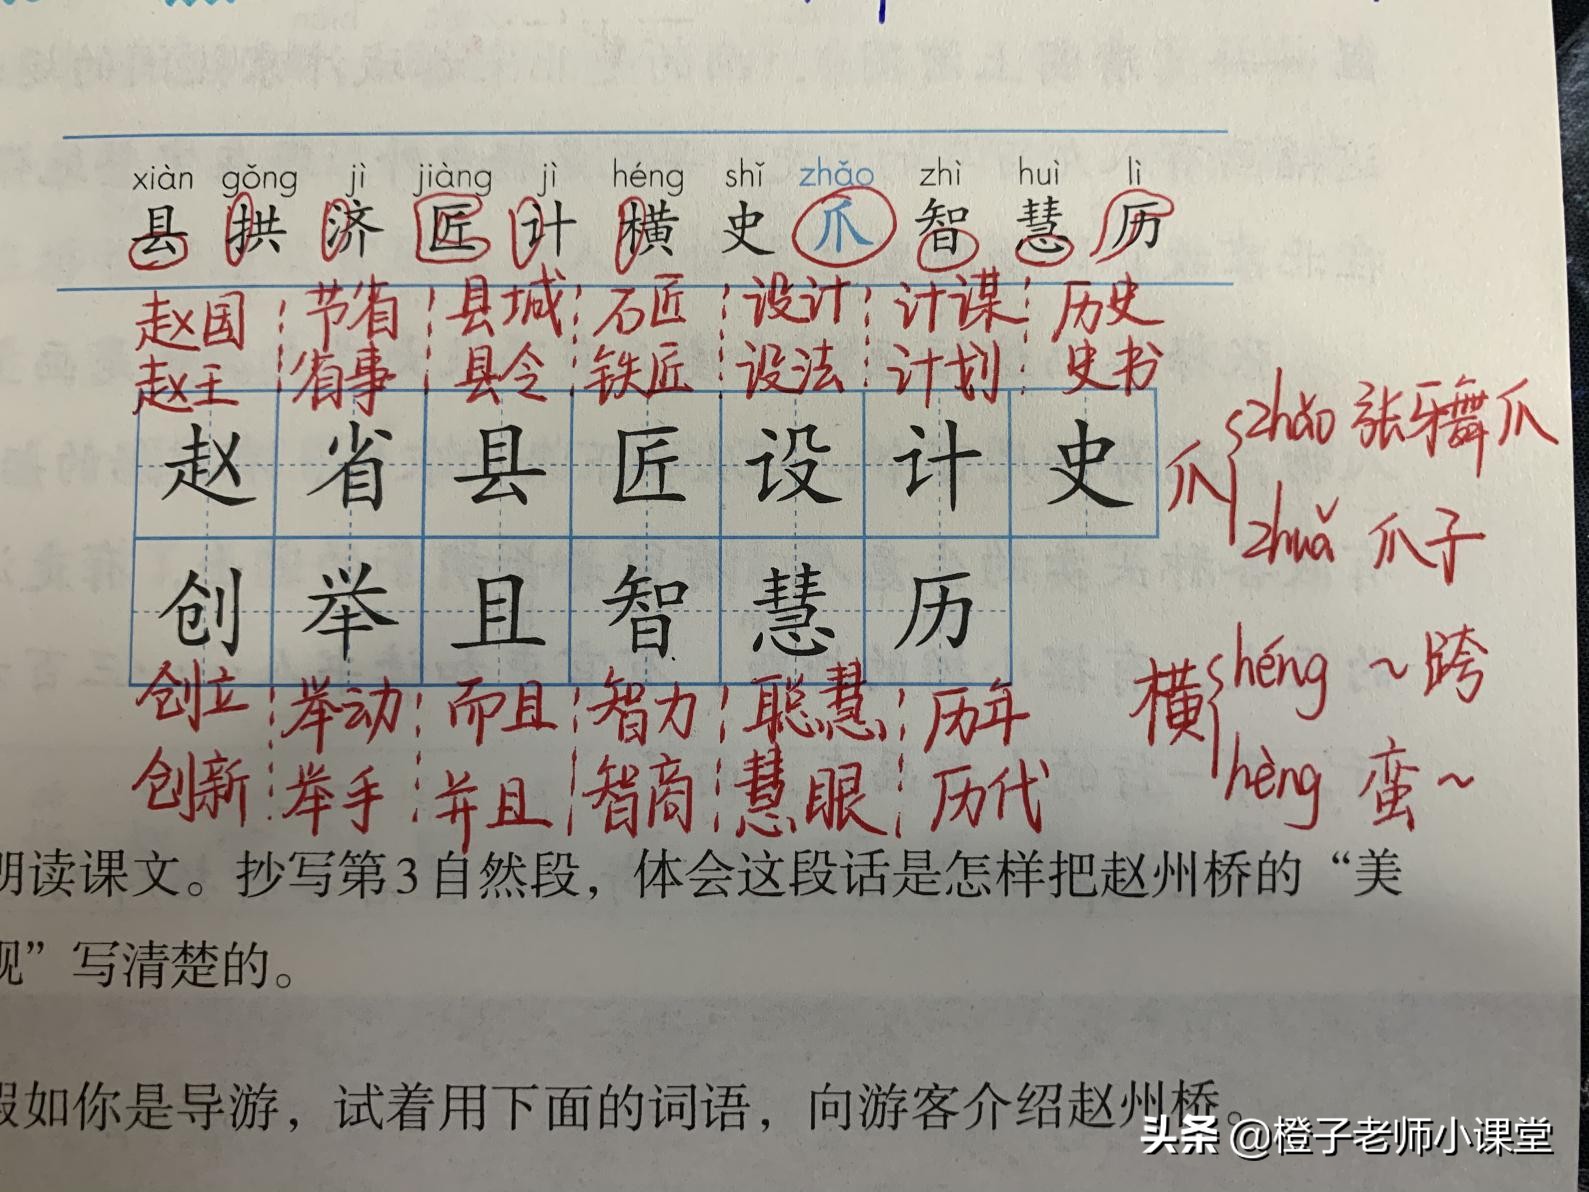 xiàn gǒng jì jiàng jì héng shǐ zhǎo zhì huì lì
县 拱 济 匠 计 横 史 爪 智 慧 历
赵国 节省 县城 石匠 设计 计谋 历史
赵王 省事 县令 铁匠 设法 计划 史书
赵 省 县 匠 设 计 史
爪 zhǎo 张牙舞爪
zhuǎ 爪子
创 举 且 智 慧 历
创立 举动 而且 智力 聪慧 历年
创新 举手 并且 智商 慧眼 历代
横 héng ~跨
hèng 蛮~
朗读课文。抄写第3自然段，体会这段话是怎样把赵州桥的“美
观”写清楚的。
假如你是导游，试着用下面的词语，向游客介绍赵州桥。
头条 @橙子老师小课堂